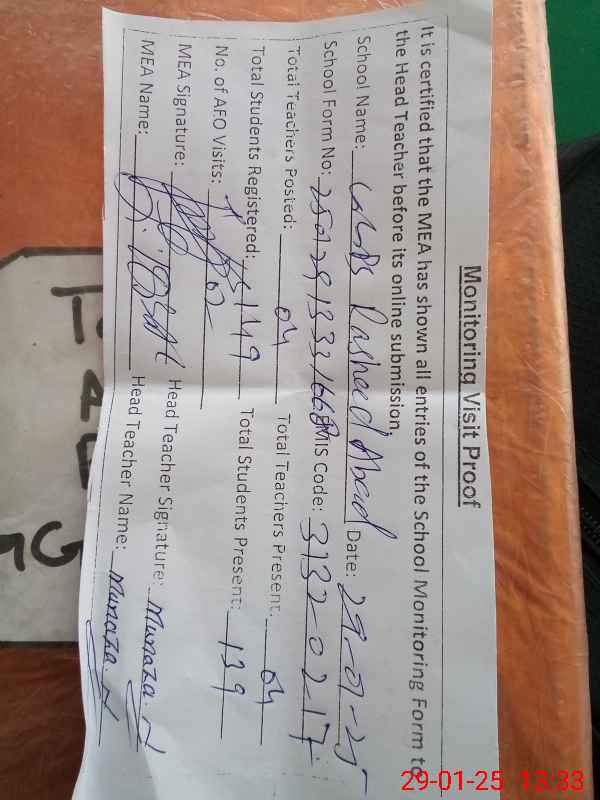 Monitoring Visit Proof
It is certified that the MEA has shown all entries of the School Monitoring Form to
the Head Teacher before its online submission.
School Name: Rasheed Abad Date: 29-01-25
School Form No: EMIS Code: 3132-0217
Total Teachers Posted: 04 Total Teachers Present: 04
Total Students Registered: 149 Total Students Present: 139
No. of AEO Visits: 02
MEA Signature: Head Teacher Signature: Munaza. N
MEA Name: Head Teacher Name: Munaza. N
29-01-25 13:33